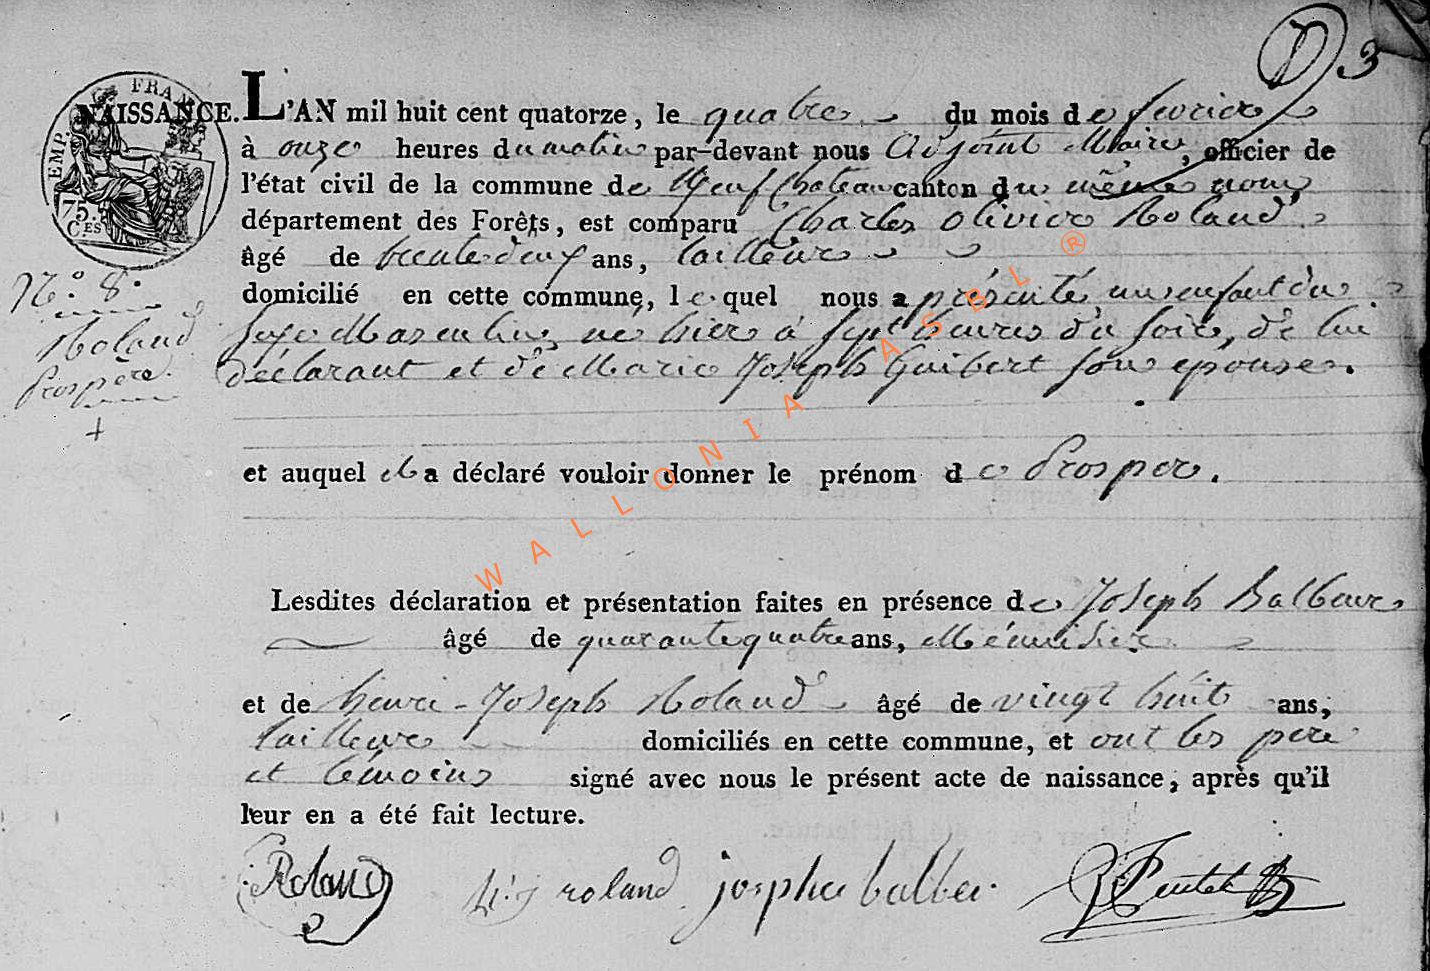 D 3
EMP. FRAN
75. CES
NAISSANCE. L'AN mil huit cent quatorze, le quatre du mois de fevrier
à onze heures du matin par-devant nous Adjoint Maire, officier de
l'état civil de la commune de Neufchateau canton du même nom,
département des Forêts, est comparu Charles Olivier Roland
âgé de trente deux ans, tailleur
domicilié en cette commune, lequel nous a présenté un enfant du
N.° 8.
Roland
Prospère.
+
sexe Masculin, né hier à sept heures du soir, de lui
déclarant et de Marie Joseph Guibert son epouse.
et auquel il a déclaré vouloir donner le prénom de Prosper.
Lesdites déclaration et présentation faites en présence de Joseph Balbeur
âgé de quarante quatre ans, Ménuisier
et de henri-Joseph Roland âgé de vingt huit ans,
tailleur domiciliés en cette commune, et ont les pere
et témoins signé avec nous le présent acte de naissance, après qu'il
leur en a été fait lecture.
Roland h: j roland josphe balbeu
WALLONIA ASBL ®